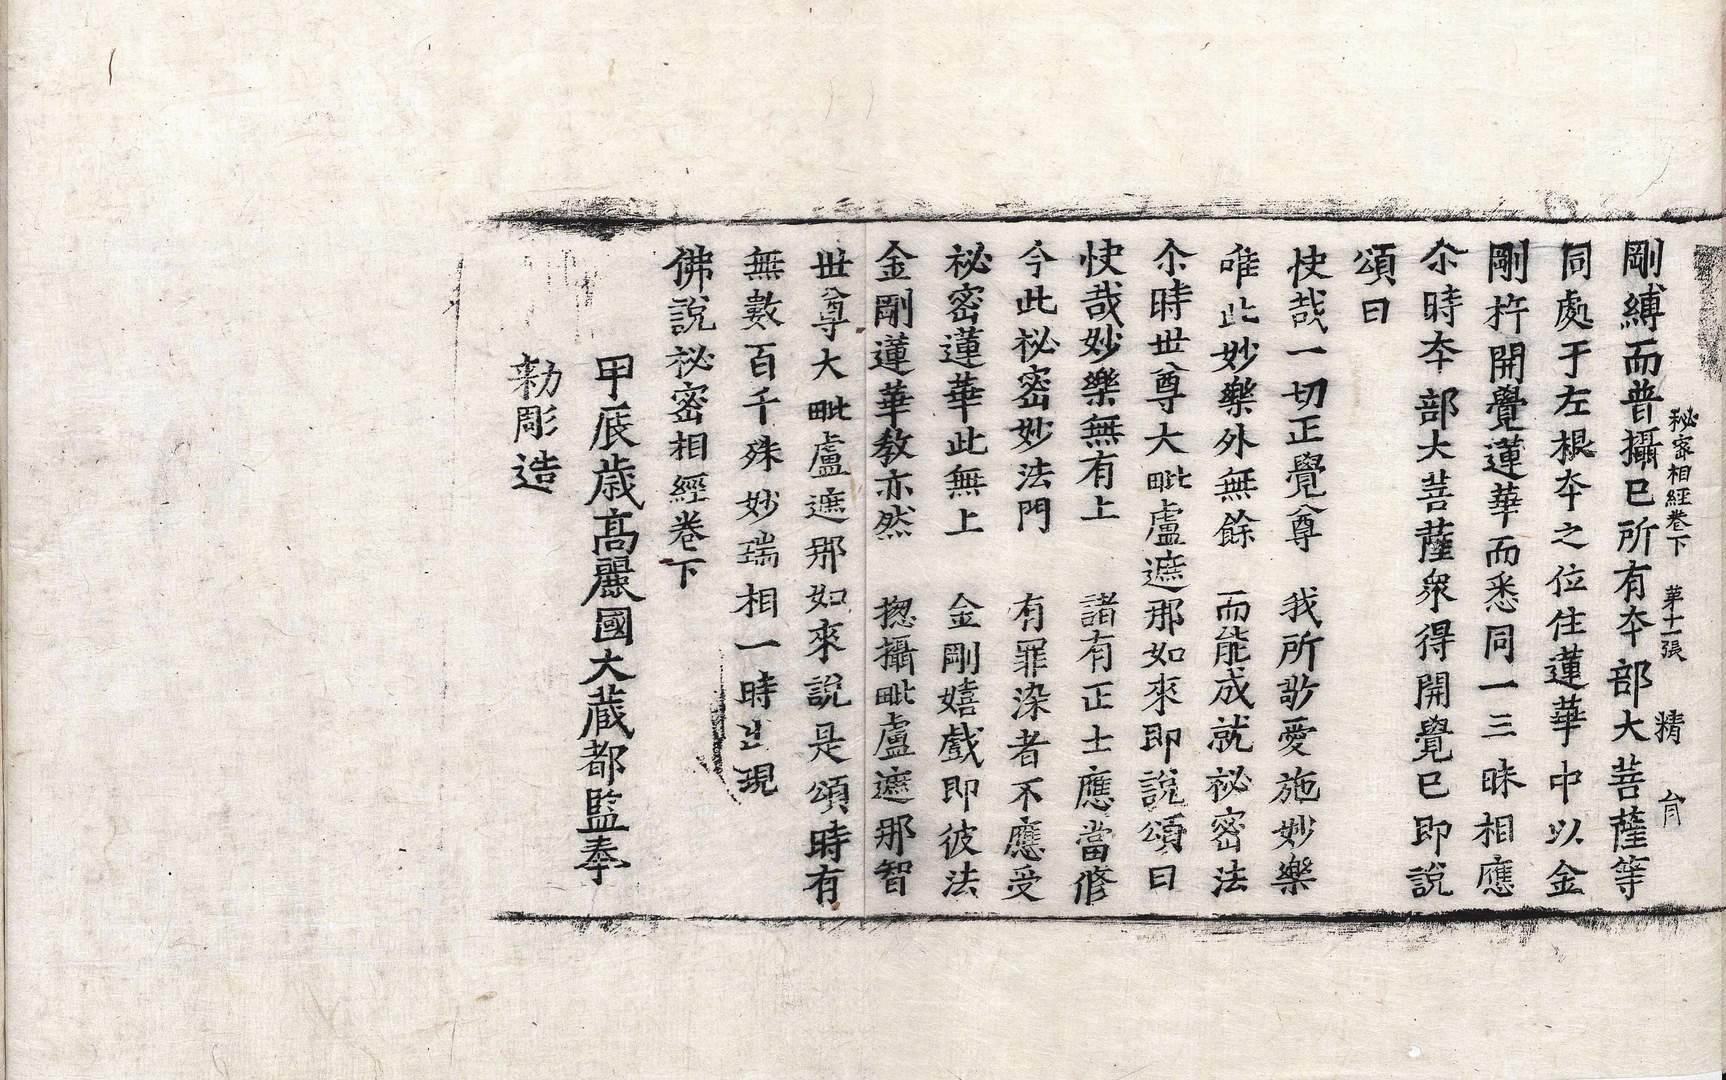 秘密相經卷下　第十一張　精
剛縛而普攝已所有夲部大菩薩等
同處于左根夲之位住蓮華中以金
剛杵開覺蓮華而悉同一三昧相應
尒時夲部大菩薩衆得開覺已即說
頌曰
快哉一切正覺尊　我所敬愛施妙樂
唯此妙樂外無餘　而能成就祕密法
尒時世尊大毗盧遮那如來即說頌曰
快哉妙樂無有上　諸有正士應當修
今此祕密妙法門　有罪染者不應受
祕密蓮華此無上　金剛嬉戲即彼法
金剛蓮華教亦然　揔攝毗盧遮那智
世尊大毗盧遮那如來說是頌時有
無數百千殊妙瑞相一時出現
佛說祕密相經卷下
甲辰歳高麗國大藏都監奉
勑彫造